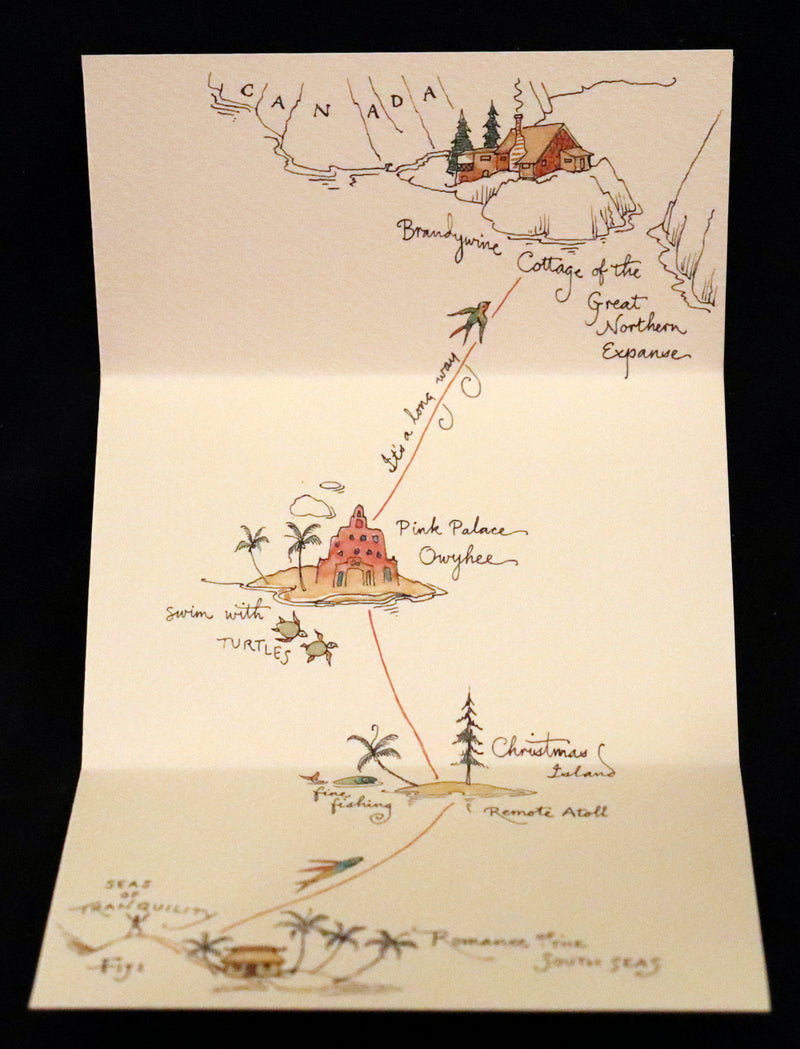 CANADA
Brandywine
Cottage of the
Great
Northern
Expanse
It's a long way
Pink Palace
Owyhee
swim with
TURTLES
Christmas
Island
fine
fishing
Remote Atoll
SEAS
OF
TRANQUILITY
Fiji
Romance of the
South Seas